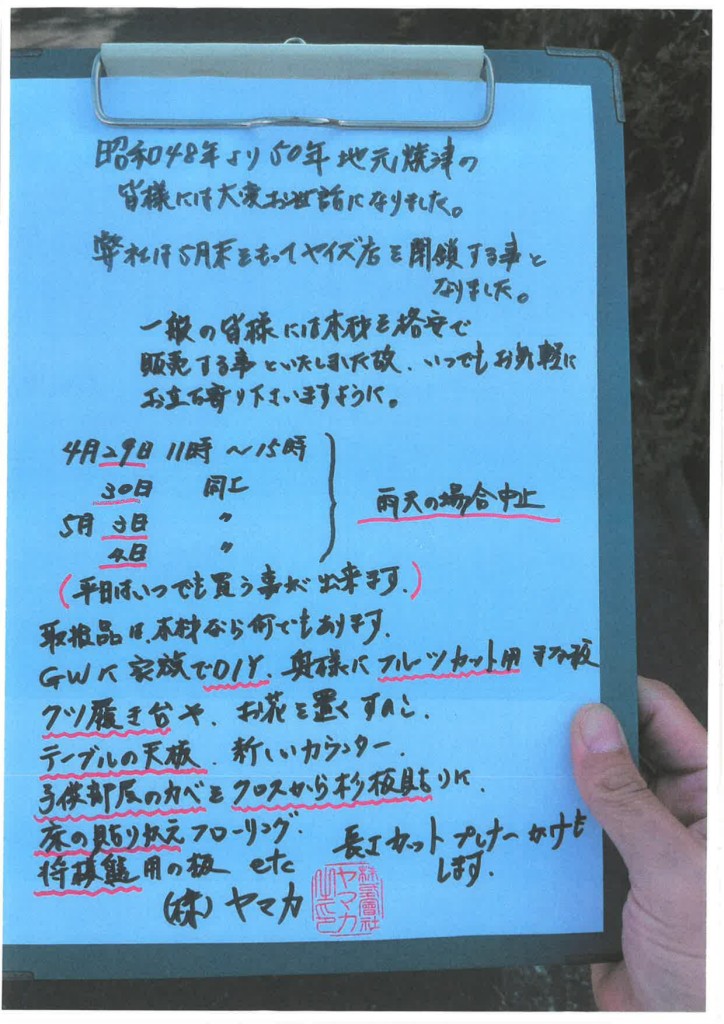 昭和48年より50年地元焼津の
皆様には大変お世話になりました。
弊社は5月末をもってヤイズ店を閉鎖する事と
なりました。
一般の皆様には木材を格安で
販売する事といたしました故、いつでもお気軽に
お立ち寄り下さいますように。
4月29日 11時 〜15時
30日 同上
5月 3日 〃
4日 〃
雨天の場合中止
(平日はいつでも買う事が出来ます.)
取扱品は、木材なら何でもあります.
GWに家族でDIY. 奥様にフルーツカット用まな板
クツ履き台や、お花を置くすのこ.
テーブルの天板. 新しいカウンター.
子供部屋のカベをクロスから杉板貼りに.
床の貼り替えフローリング.
将棋盤用の板 etc
長サカット プレナーがけも
します.
(株)ヤマカ
株式會社
ヤマカ